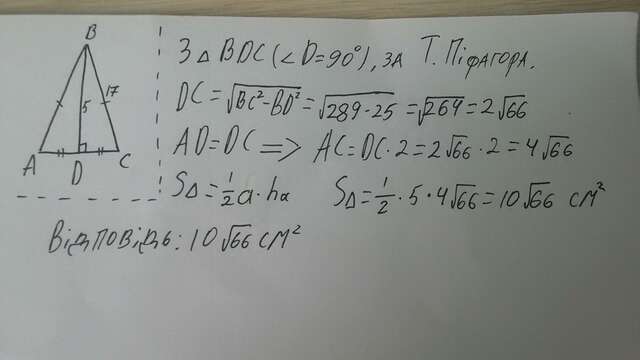 B
5
17
A
D
C
З △ BDC (∠D=90°), за Т. Піфагора.
DC = √BC²-BD² = √289-25 = √264 = 2√66
AD = DC => AC = DC · 2 = 2√66 · 2 = 4√66
S△ = 1/2 a · hа S△ = 1/2 · 5 · 4√66 = 10√66 см²
Відповідь: 10√66 см²